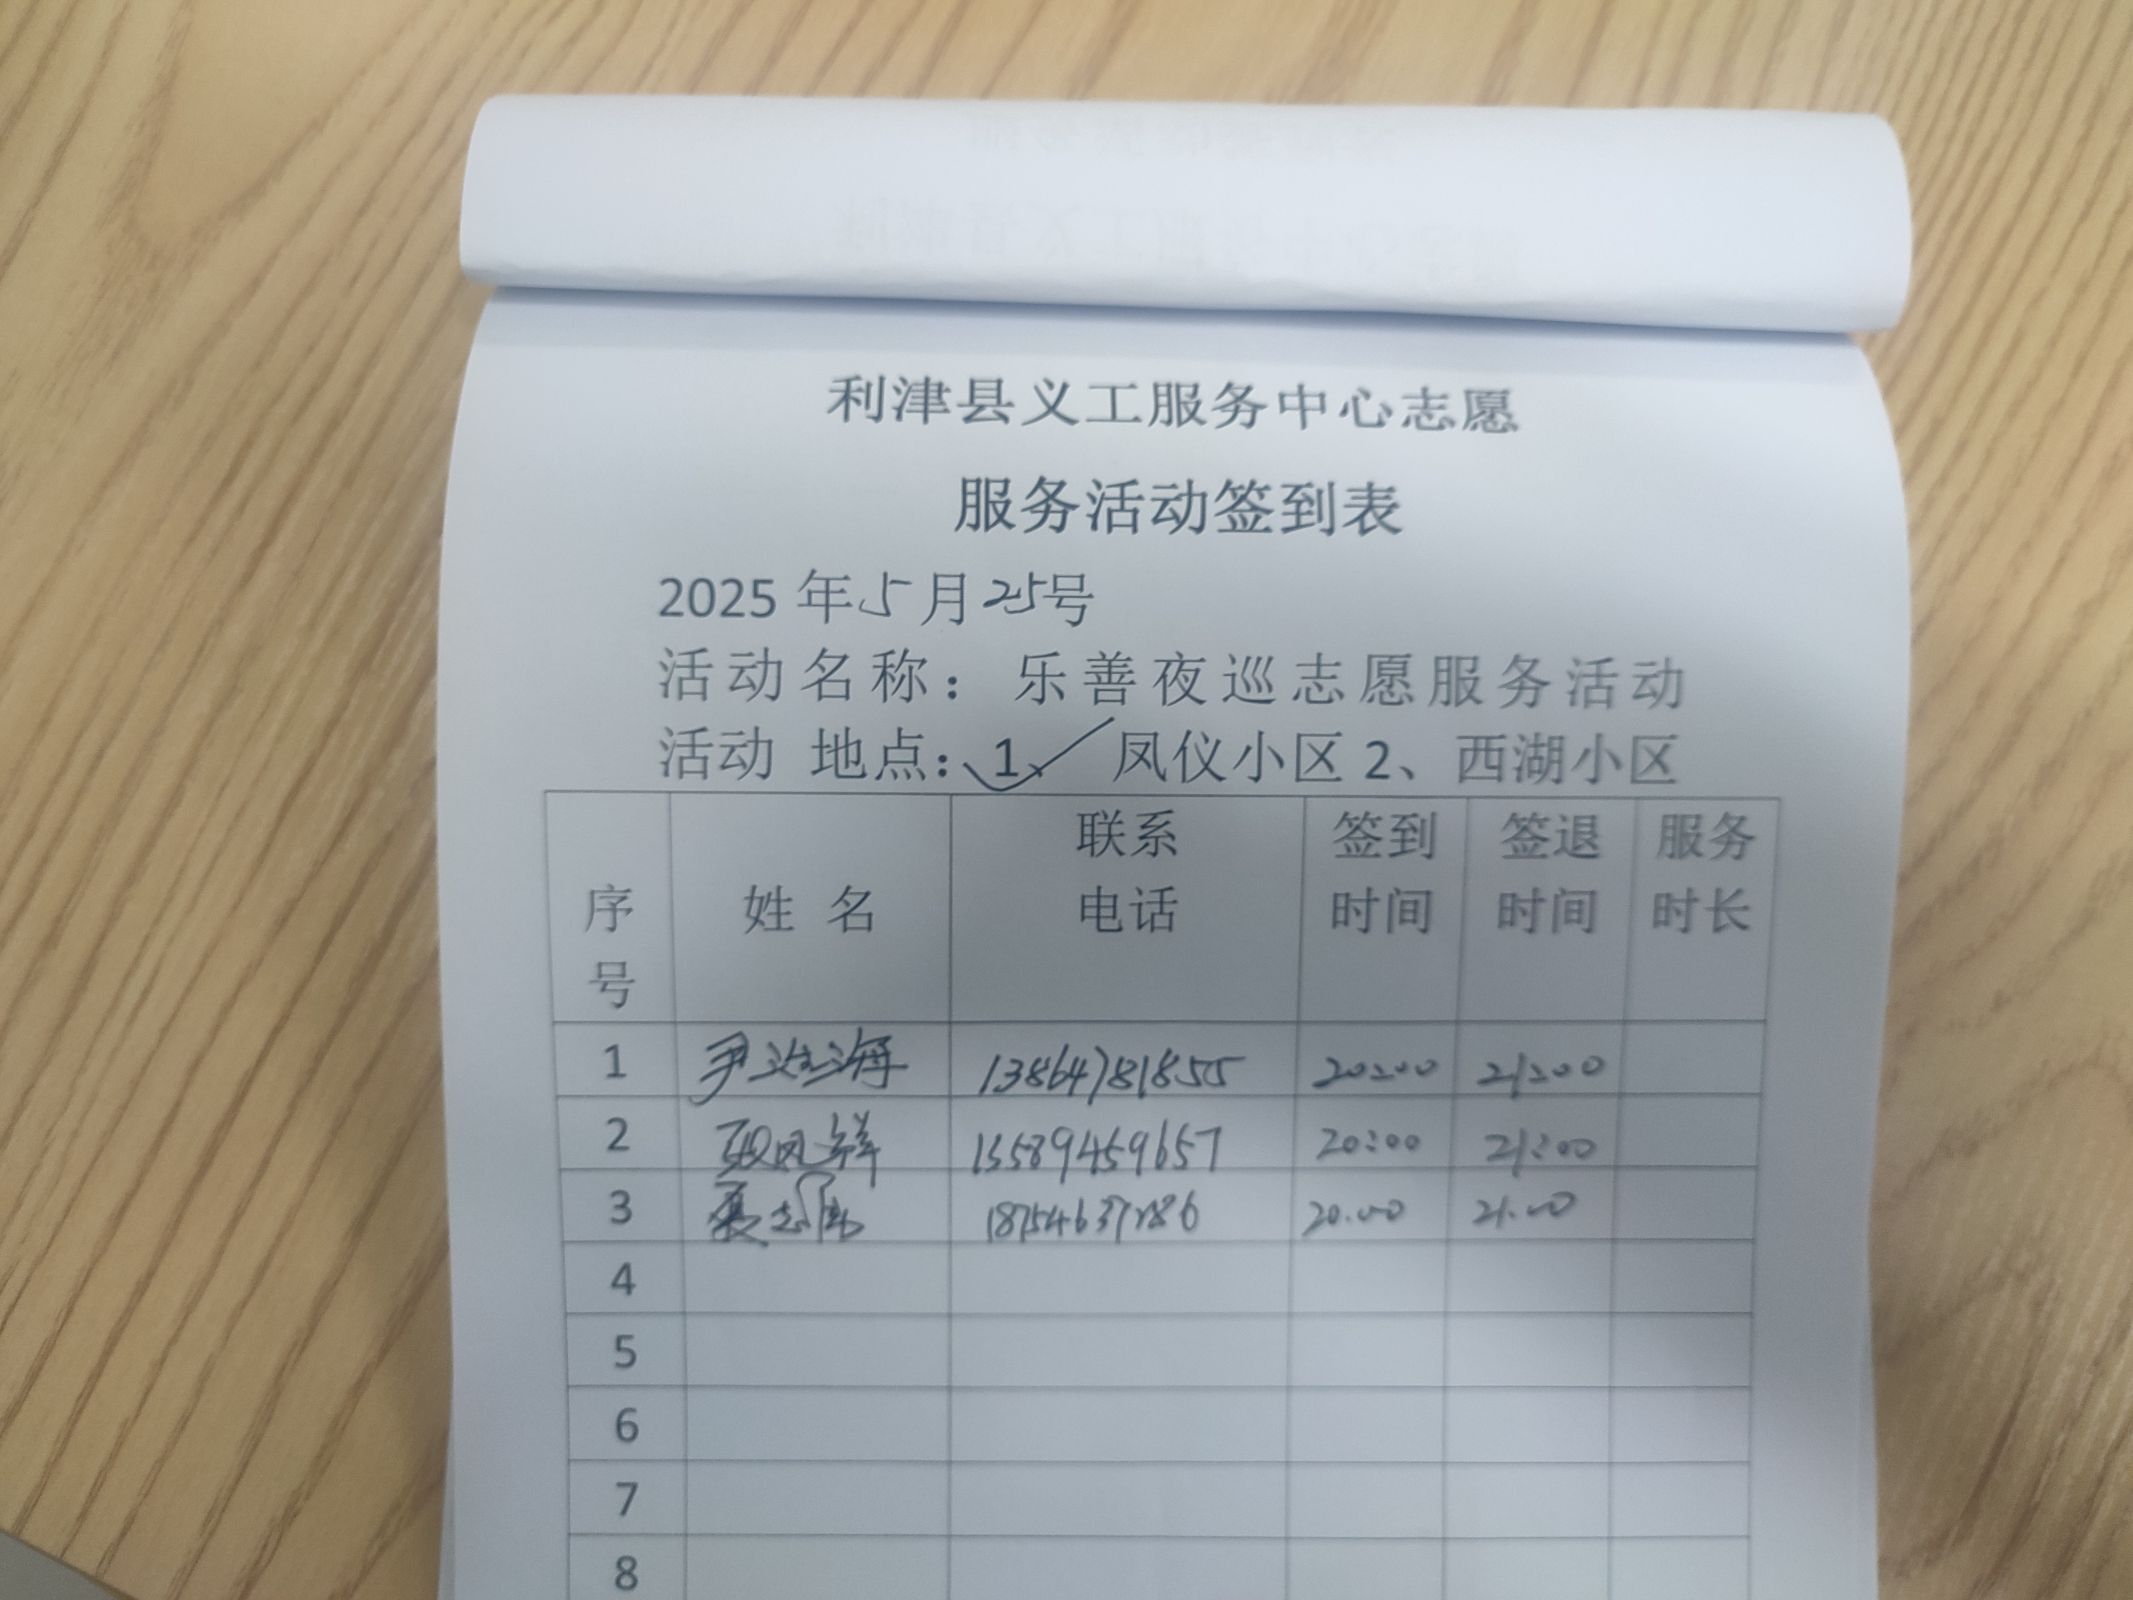 利津县义工服务中心志愿
服务活动签到表
2025 年 5 月 25号
活动名称：乐善夜巡志愿服务活动
活动 地点：1、 凤仪小区 2、西湖小区
序号 姓 名 联系电话 签到时间 签退时间 服务时长
1 尹海 13864781855 20:00 21:00
2 凤祥 13589459657 20:00 21:00
3 聂志 20:00 21:00
4
5
6
7
8